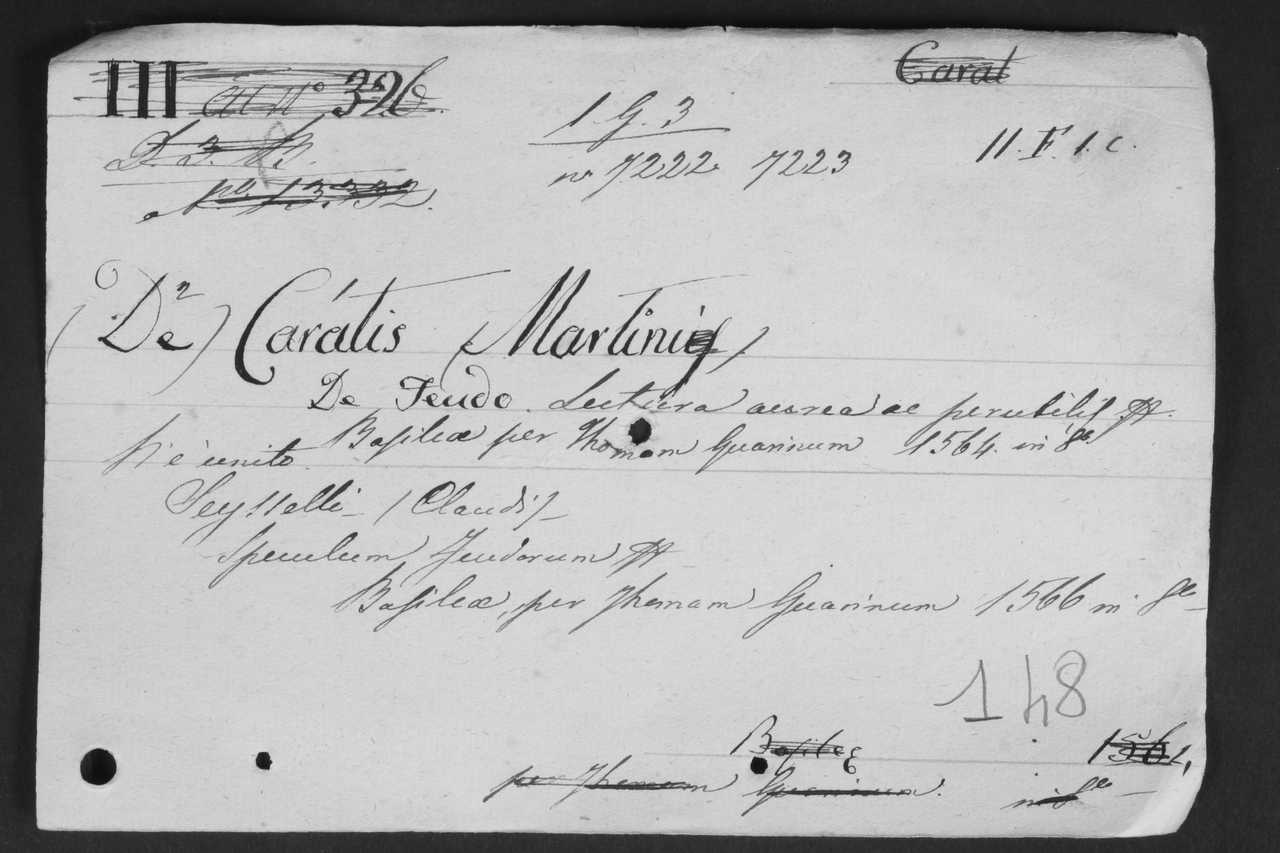 III 326
Carat
D. 3.
No. 13.332.
1. G. 3
no 7222 7223
11. F. 1. c.
(De) Carátis (Martini).
De Feudo. Lectura aurea ac perutilis
Basileæ per Thomam Guarinum 1564. in 8o
Vi è unito.
Seysselli (Claudi)
Speculum Feudorum
Basileæ, per Thomam Guarinum 1566 in 8o
148
Basileę 1564,
per Thomam Guarinum. in 8o